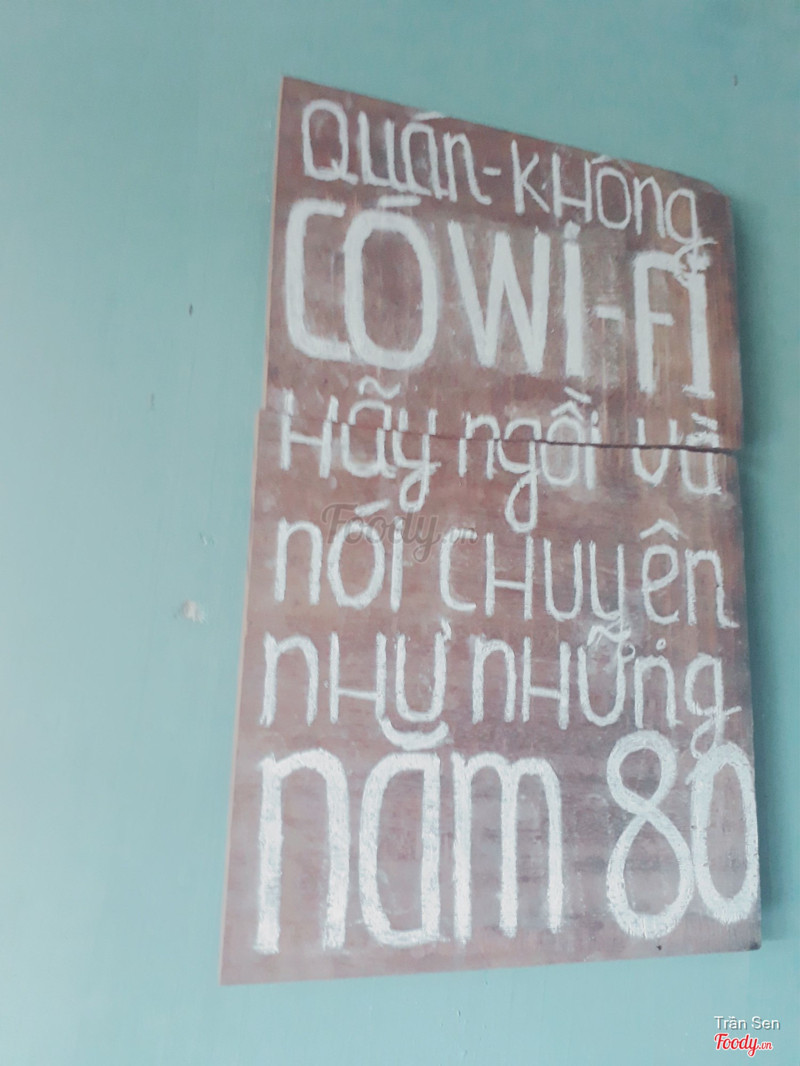 QUÁN-KHÔNG
CÓ WI-FI
HÃY NGỒI VÀ
NÓI CHUYÊN
NHƯ NHỮNG
NĂM 80
Foody.vn
Trần Sen
Foody.vn